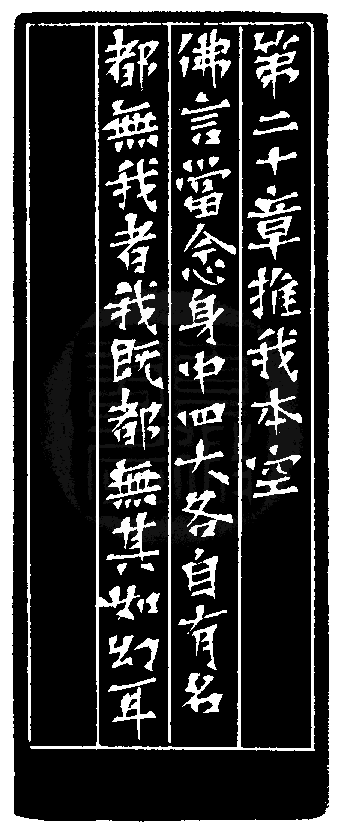 第二十章推我本空
佛言當念身中四大各自有名
都無我者我既都無其如幻耳